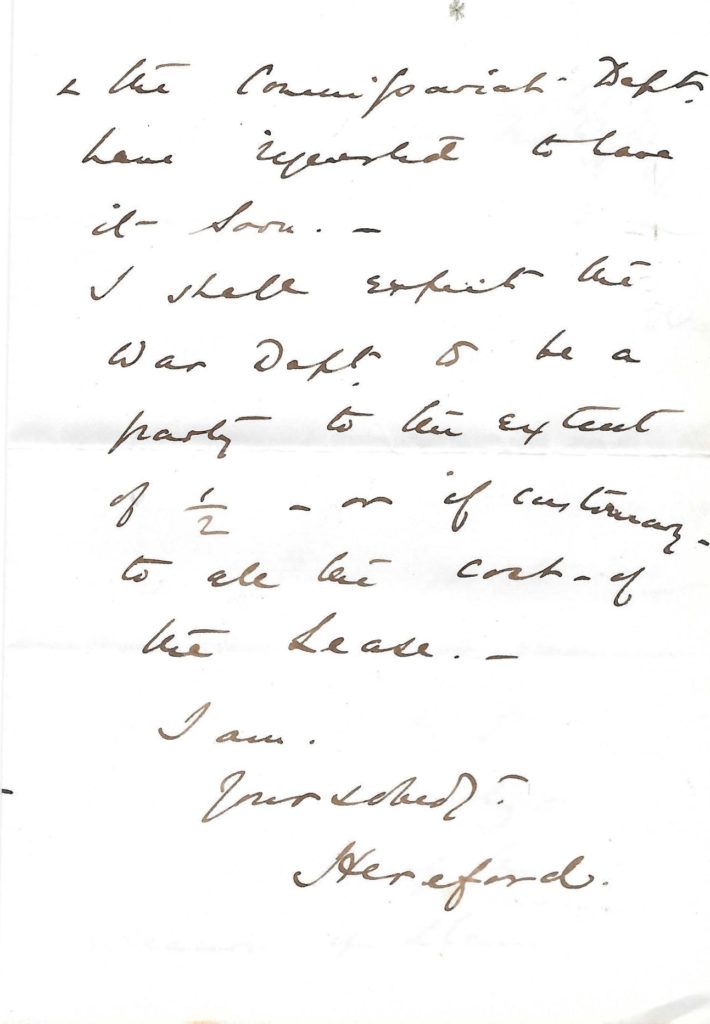 & the Commissariat Dept.
have requested to have
it soon. –
I shall expect the
War Dept. to be a
party to the extent
of 1/2 – or if customary –
to all the cost – of
the Lease. –
I am.
Your obedt.
Hereford.